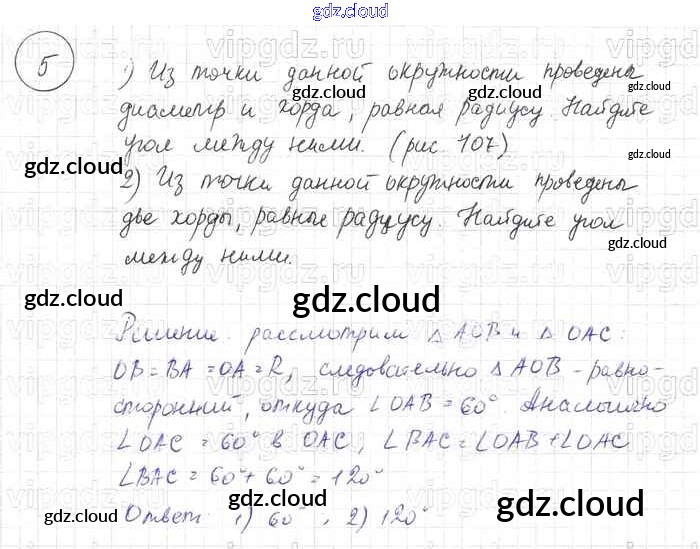 gdz.cloud
5
1) Из точки данной окружности проведены
диаметр и хорда, равная радиусу. Найдите
угол между ними. (рис. 107)
2) Из точки данной окружности проведены
две хорды, равные радиусу. Найдите угол
между ними.
Решение: рассмотрим △ AOB и △ OAC:
OB = BA = OA = R, следовательно △ AOB - равно-
сторонний, откуда ∠OAB = 60°. Аналогично
∠OAC = 60° в OAC, ∠BAC = ∠OAB + ∠OAC
∠BAC = 60° + 60° = 120°
Ответ: 1) 60°; 2) 120°
gdz.cloud
gdz.cloud
gdz.cloud
gdz.cloud
gdz.cloud
gdz.cloud
gdz.cloud
gdz.cloud
gdz.cloud
gdz.cloud
gdz.cloud
gdz.cloud
gdz.cloud
gdz.cloud